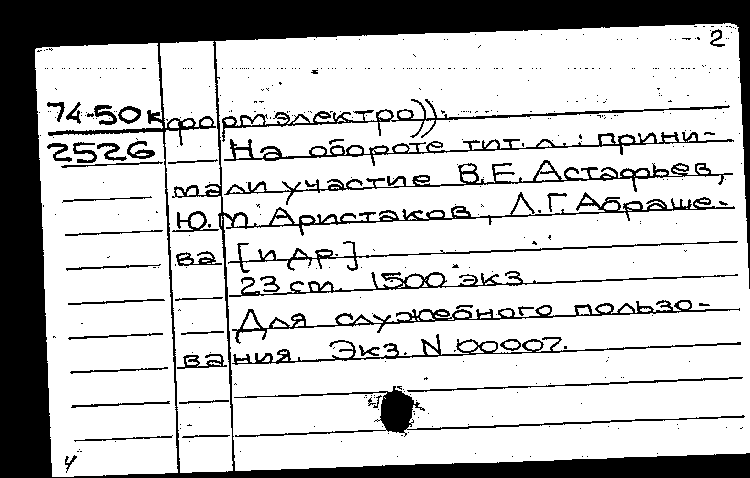 2
74-50к форм электро)).
2526 На обороте тит. л.: прини-
мали участие В.Е. Астафьев,
Ю.М. Аристаков, Л.Г. Абраше-
ва [и др.].
23 см. 1500 экз.
Для служебного пользо-
вания. Экз. N 00007.
4